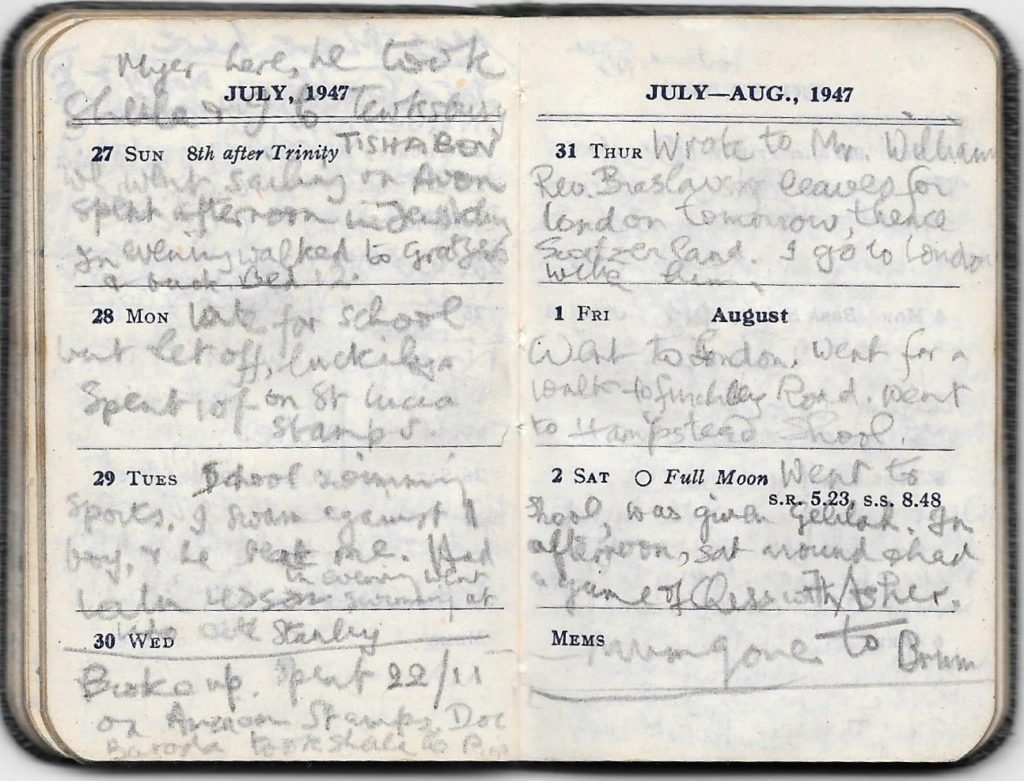 Myer here, he took
JULY, 1947
Sheila & J to Tewksbury
27 SUN 8th after Trinity TISHABOV
We went sailing on Avon
Spent afternoon in
In evening walked to
& back Bed 12.
28 MON Late for school
but let off, luckily
Spent 10/- on St Lucia
Stamps.
29 TUES School swimming
Sports. I swam against 1
boy, & he beat me. Had
in evening went
Latin lesson swimming at
Lido with Stanley
30 WED
Broke up. Spent 22/11
on Stamps. Doc
Baroda took to
JULY—AUG., 1947
31 THUR Wrote to Mr. William
Rev. Braslavsky leaves for
London tomorrow, thence
Switzerland. I go to London
with him.
1 FRI August
Went to London. Went for a
walk to Finchley Road. Went
to Hampstead Shool.
2 SAT Full Moon Went to
S.R. 5.23, S.S. 8.48
Shool, was given Gelilah. In
afternoon, sat around & had
a game of Chess with Asher.
MEMS gone to